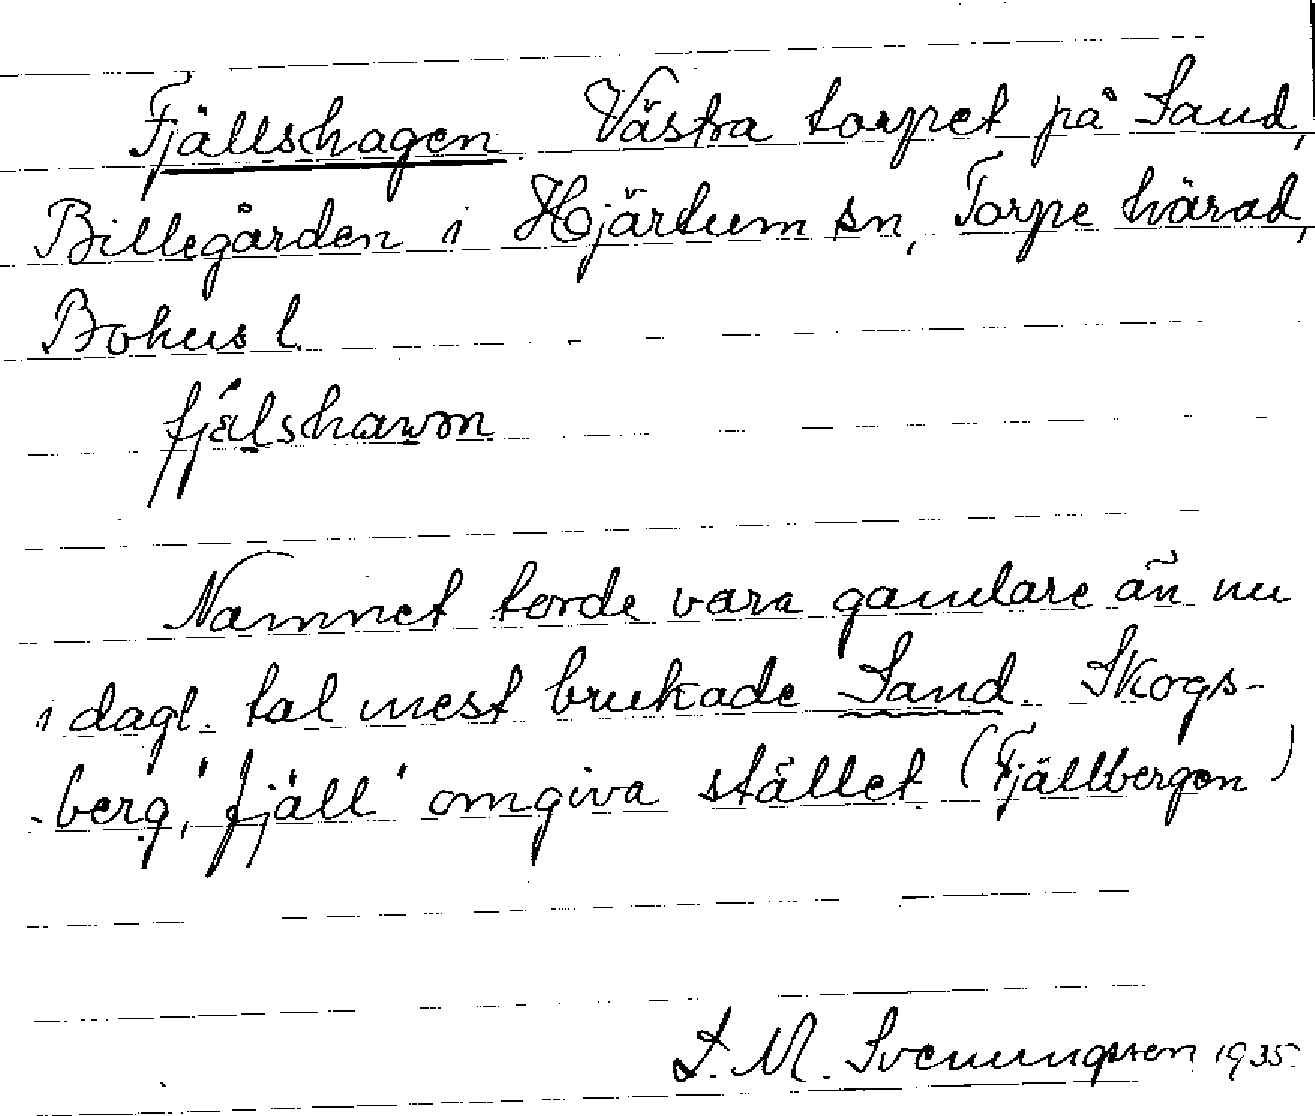 Fjällshagen Västra torpet på Sand,
Billegården i Hjärtum sn, Torpe härad,
Bohus l.
Namnet torde vara gamlare än nu
i dagl. tal mest brukade Sand. Skogs-
-berg, 'fjäll' omgiva stället (Fjällbergen)
S. M. Svenungsson 1935.